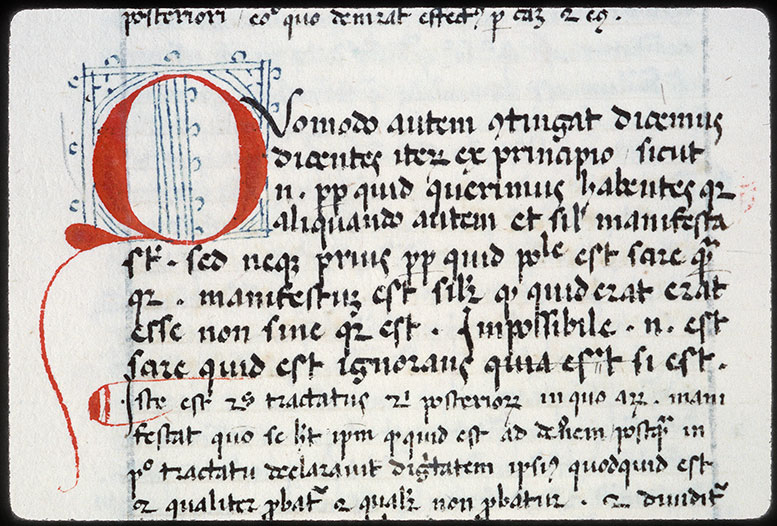 posteriori / eo quo demrat effect' p cam & eq.
Quomodo autem gtingat dicemus
dicentes iter ex principio sicut
n. pp quid querimus habentes qr
aliquando autem et sil manifesta
st. sed neqz prius pp quid pole est scire qm
qr. manifestuz est silr q quid erat erat
esse non sine qr est. Impossibile. n. est
scire quid est ignorans quia est si est.
Iste est tractatus posteriorz in quo arz. mani
festat quo se ht ipm quid est ad postq in
po tractatu declaravit ipsi' quodquid est
& qualiter pbat & qualr non pbatur. & dividit